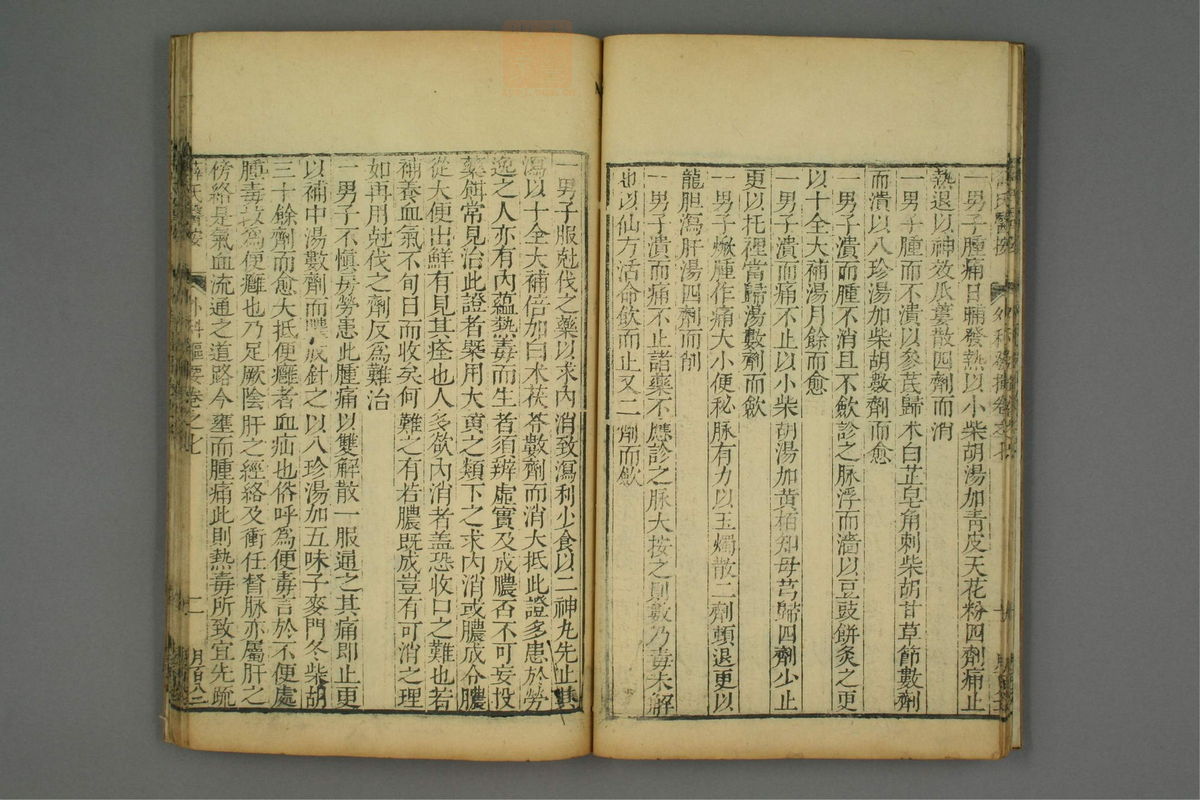 一男子腫痛日晡發熱以小柴胡湯加靑皮天花粉四劑痛止
熱退以神效瓜蔞散四劑而消
一男子腫而不潰以參芪歸术白芷皂角刺柴胡甘草節數劑
而潰以八珍湯加柴胡數劑而愈
一男子潰而腫不消且不歛診之脉浮而濇以豆豉餅灸之更
以十全大補湯月餘而愈
一男子潰而痛不止以小柴胡湯加黃栢知母芎歸四劑少止
更以托裡當歸湯數劑而歛
一男子焮腫作痛大小便秘脉有力以玉燭散二劑頓退更以
龍胆瀉肝湯四劑而削
一男子潰而痛不止諸藥不應診之脉大按之則數乃毒未解
也以仙方活命飲而止又二劑而歛
一男子服尅伐之藥以求內消致瀉利少食以二神丸先止其
瀉以十全大補倍加白术茯苓數劑而消大抵此證多患於勞
逸之人亦有內蘊熱毒而生者須辨虛實及成膿否不可妄投
藥餌常見治此證者槩用大黃之類下之求內消或膿成令膿
從大便出鮮有見其痊也人多欲內消者盖恐收口之難也若
補養血氣不旬日而收矣何難之有若膿旣成豈有可消之理
如再用尅伐之劑反爲難治
一男子不愼房勞患此腫痛以雙解散一服通之其痛即止更
以補中湯數劑而膿成針之以八珍湯加五味子麥門冬柴胡
三十餘劑而愈大抵便癰者血疝也俗呼爲便毒言於不便處
腫毒故爲便癰也乃足厥陰肝之經絡及衝任督脉亦屬肝之
傍絡是氣血流通之道路今壅而腫痛此則熱毒所致宜先疏
薛氏醫按
外科樞要卷之七
二
月百八二